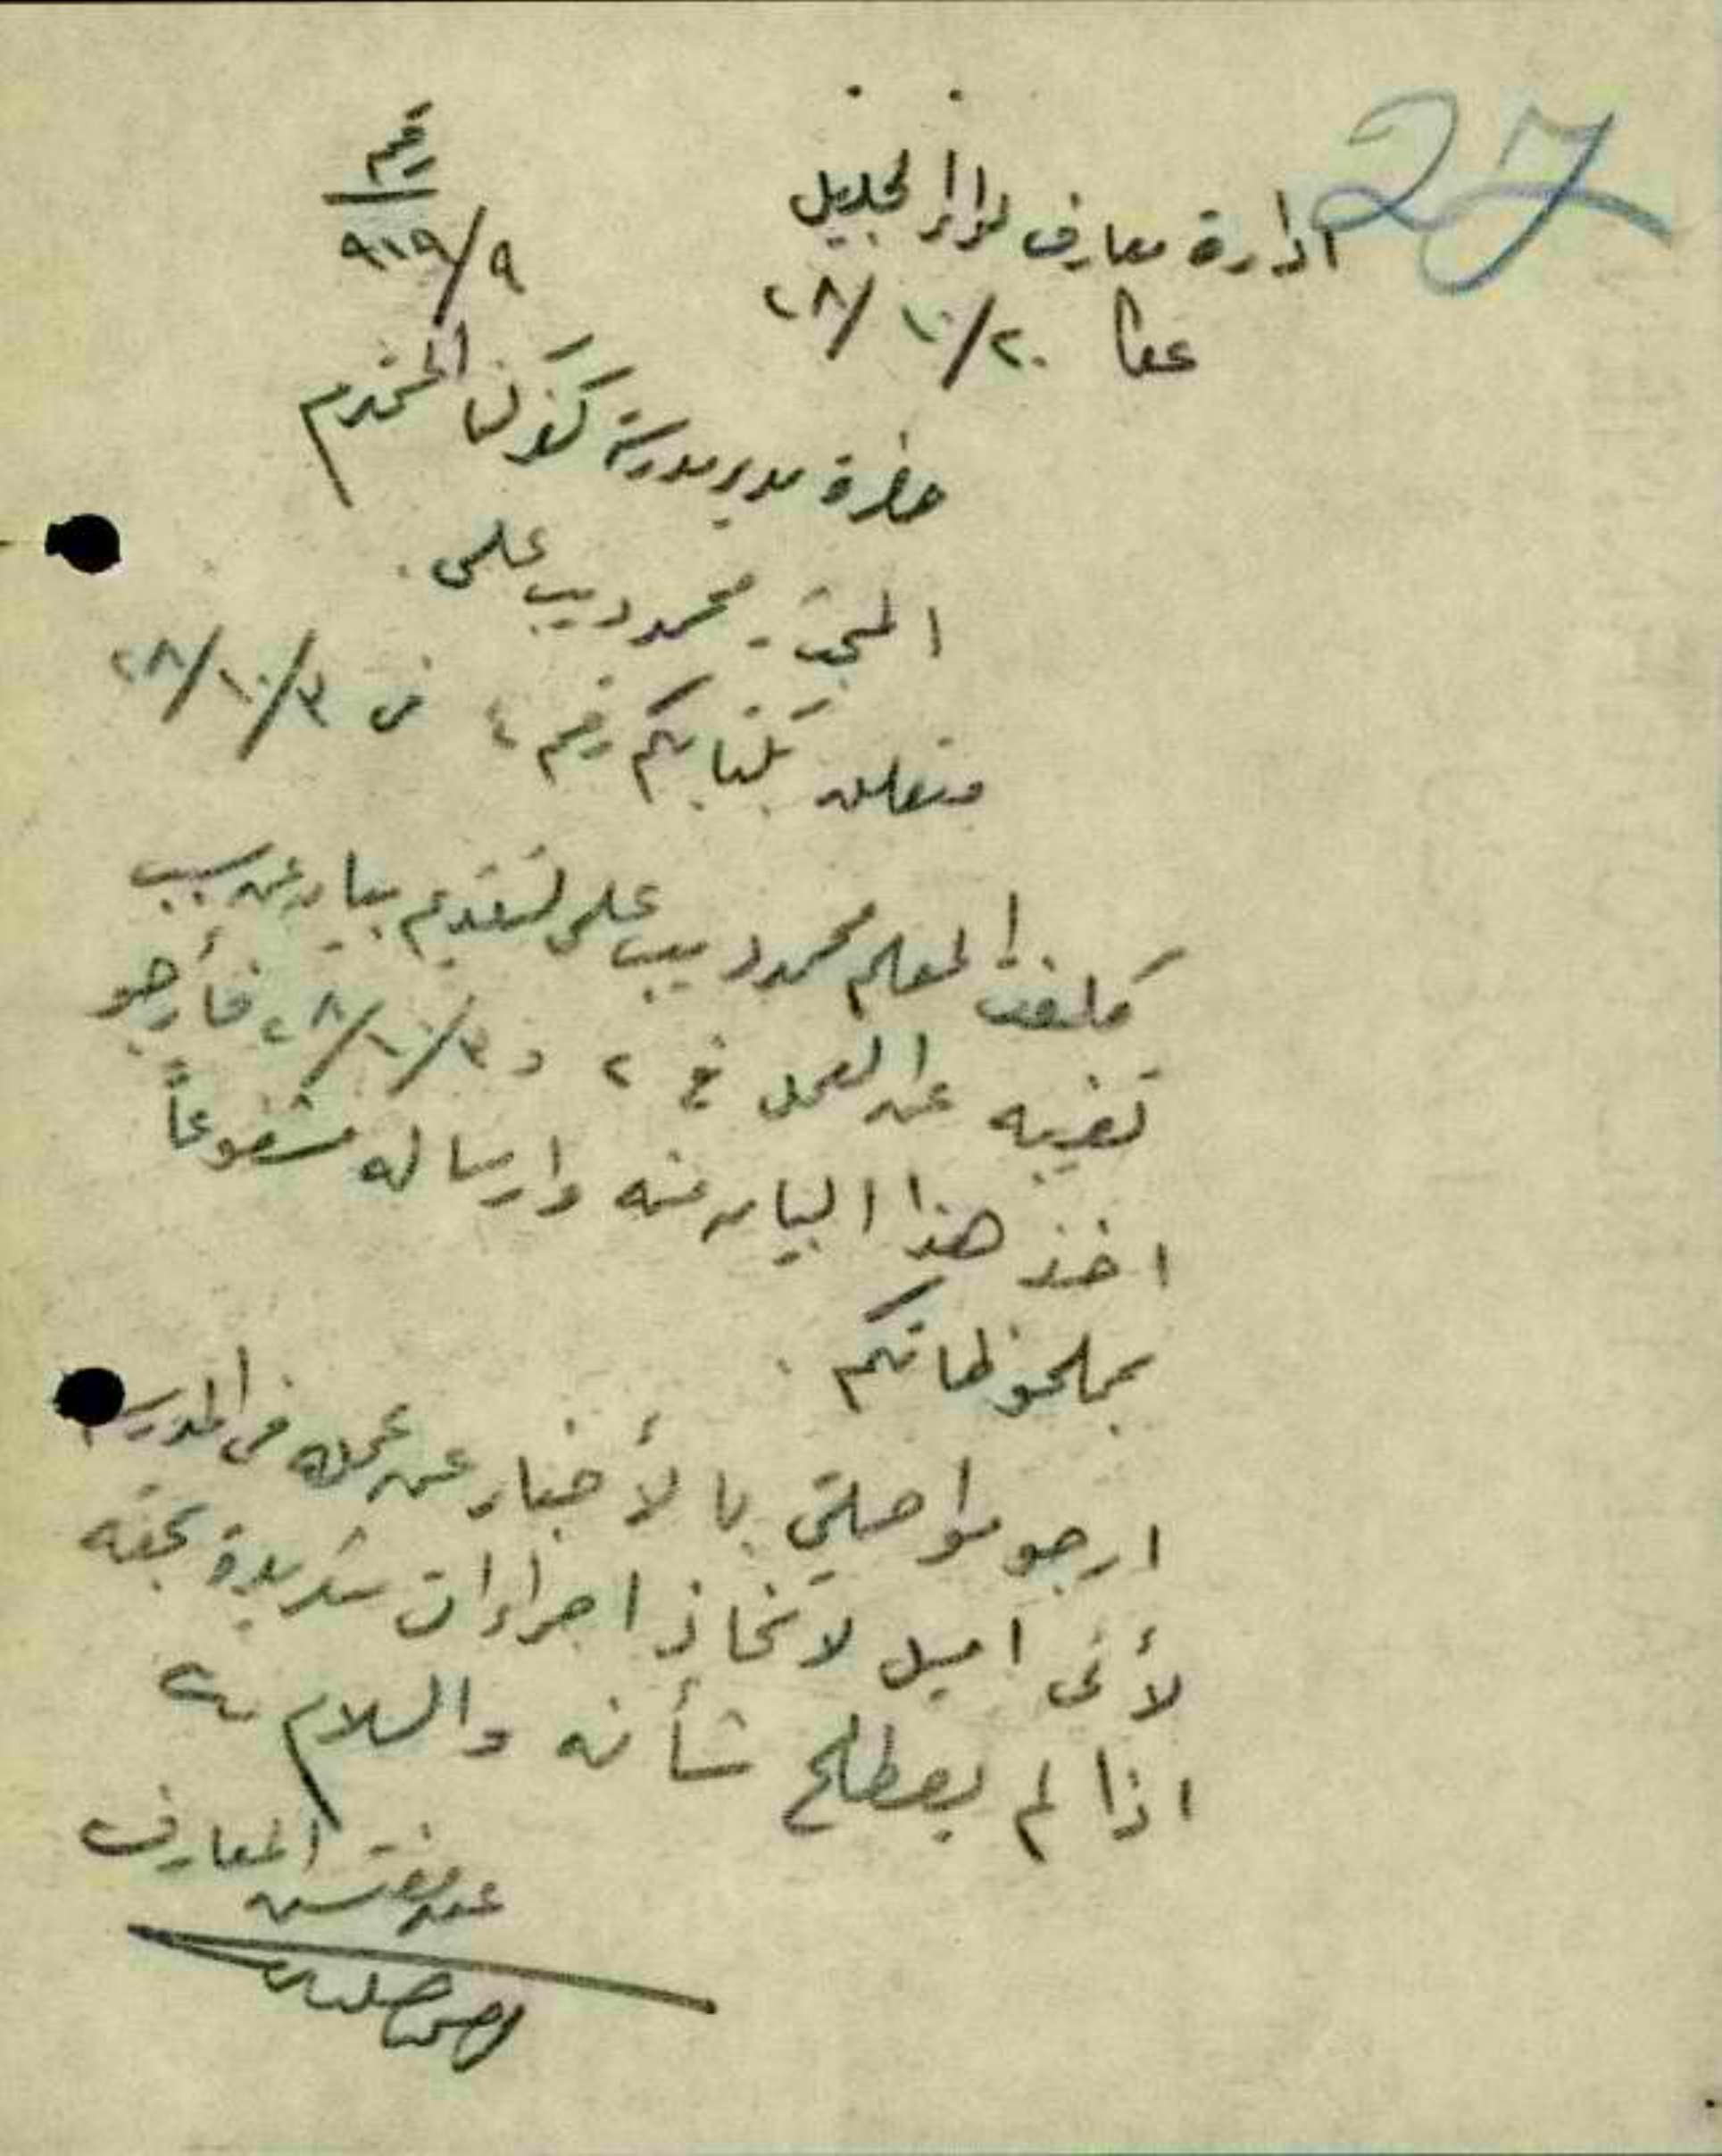 27
ادارة معارف لواء الجليل
رقم
٩/٩١٩
عكا ٢٠/١٠/٢٨
حضرة مدير مدرسة المحترم
المبحث - محمود ديب علي .
متعلق بكتابكم رقم ٤ في ٣/١٠/٢٨
كلفت المعلم محمود ديب علي لتقديم بيان عن سبب
تغيبه عن العمل في ٢ و ٣/١٠/٢٨، فأرجو
اخذ هذا البيان منه وارساله مشفوعاً
بملحوظاتكم .
ارجو مواصلتي بالأخبار عن عمله في المدرسة
لأني اميل لاتخاذ اجراءات شديدة بحقه
اذا لم يصطلح شأنه والسلام
عن مفتش المعارف